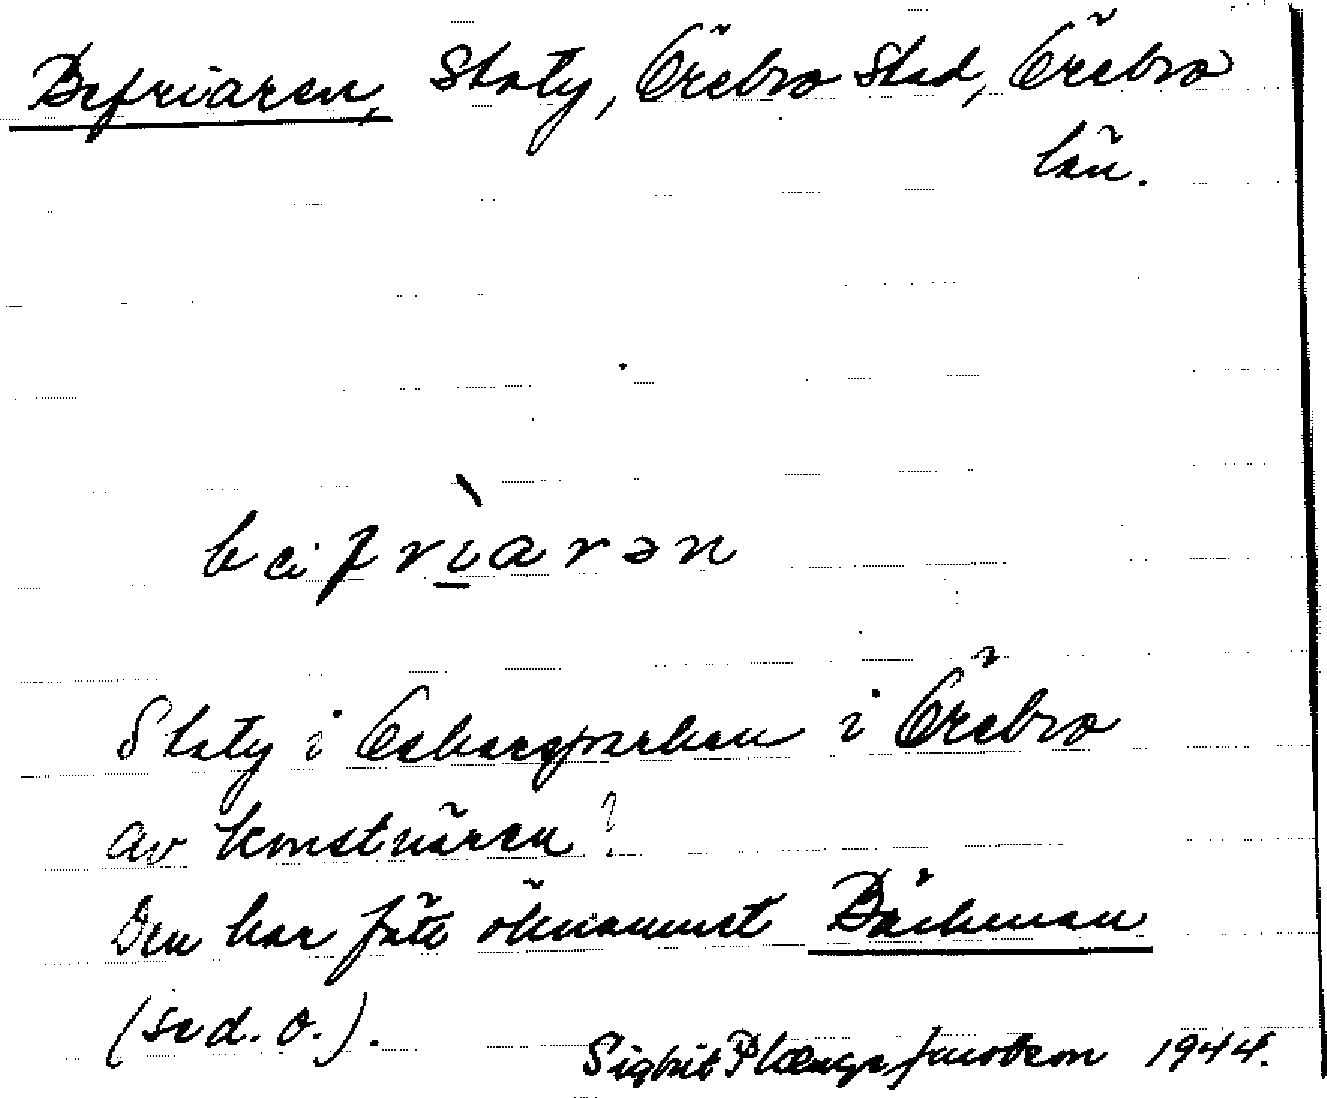 Befriaren, Staty, Örebro stad, Örebro
län.
be:friaren
Staty i Oskarsparken i Örebro
av konstnären ?
Den har fått öknamnet Båckman
(se d. o.).
Sigbrit Plænge Jacobson 1944.